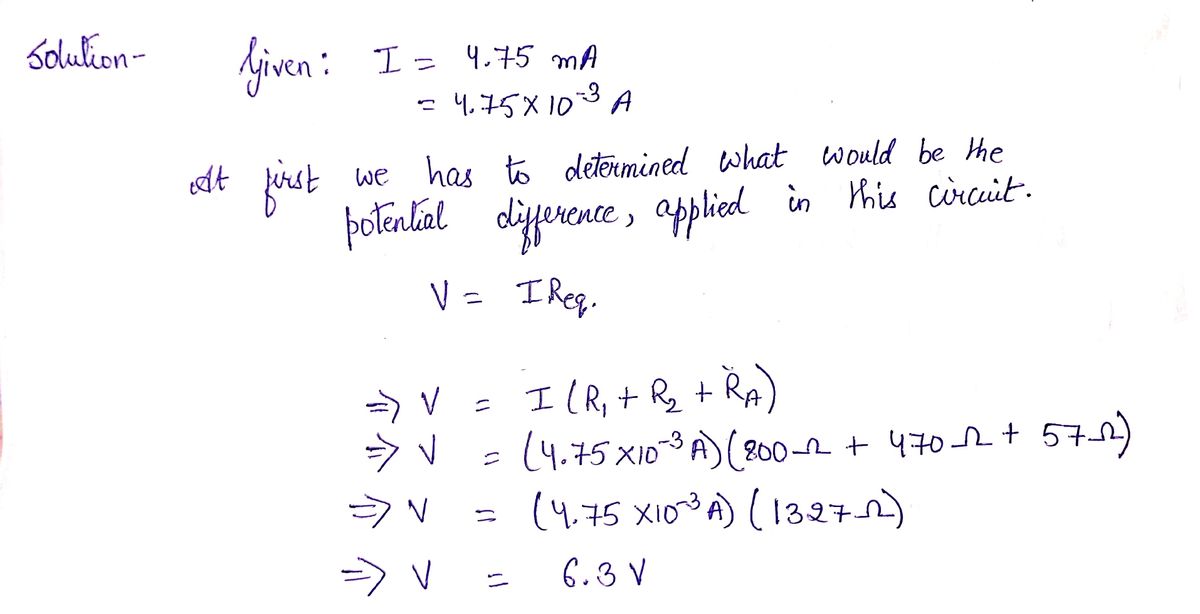 Solution- Given: I = 4.75 mA
= 4.75 X 10⁻³ A
At first we has to determined what would be the
potential difference, applied in this circuit.
V = I Req.
⇒ V = I (R₁ + R₂ + RA)
⇒ V = (4.75 X10⁻³ A) (800 Ω + 470 Ω + 57 Ω)
⇒ V = (4.75 X10⁻³ A) (1327 Ω)
⇒ V = 6.3 V